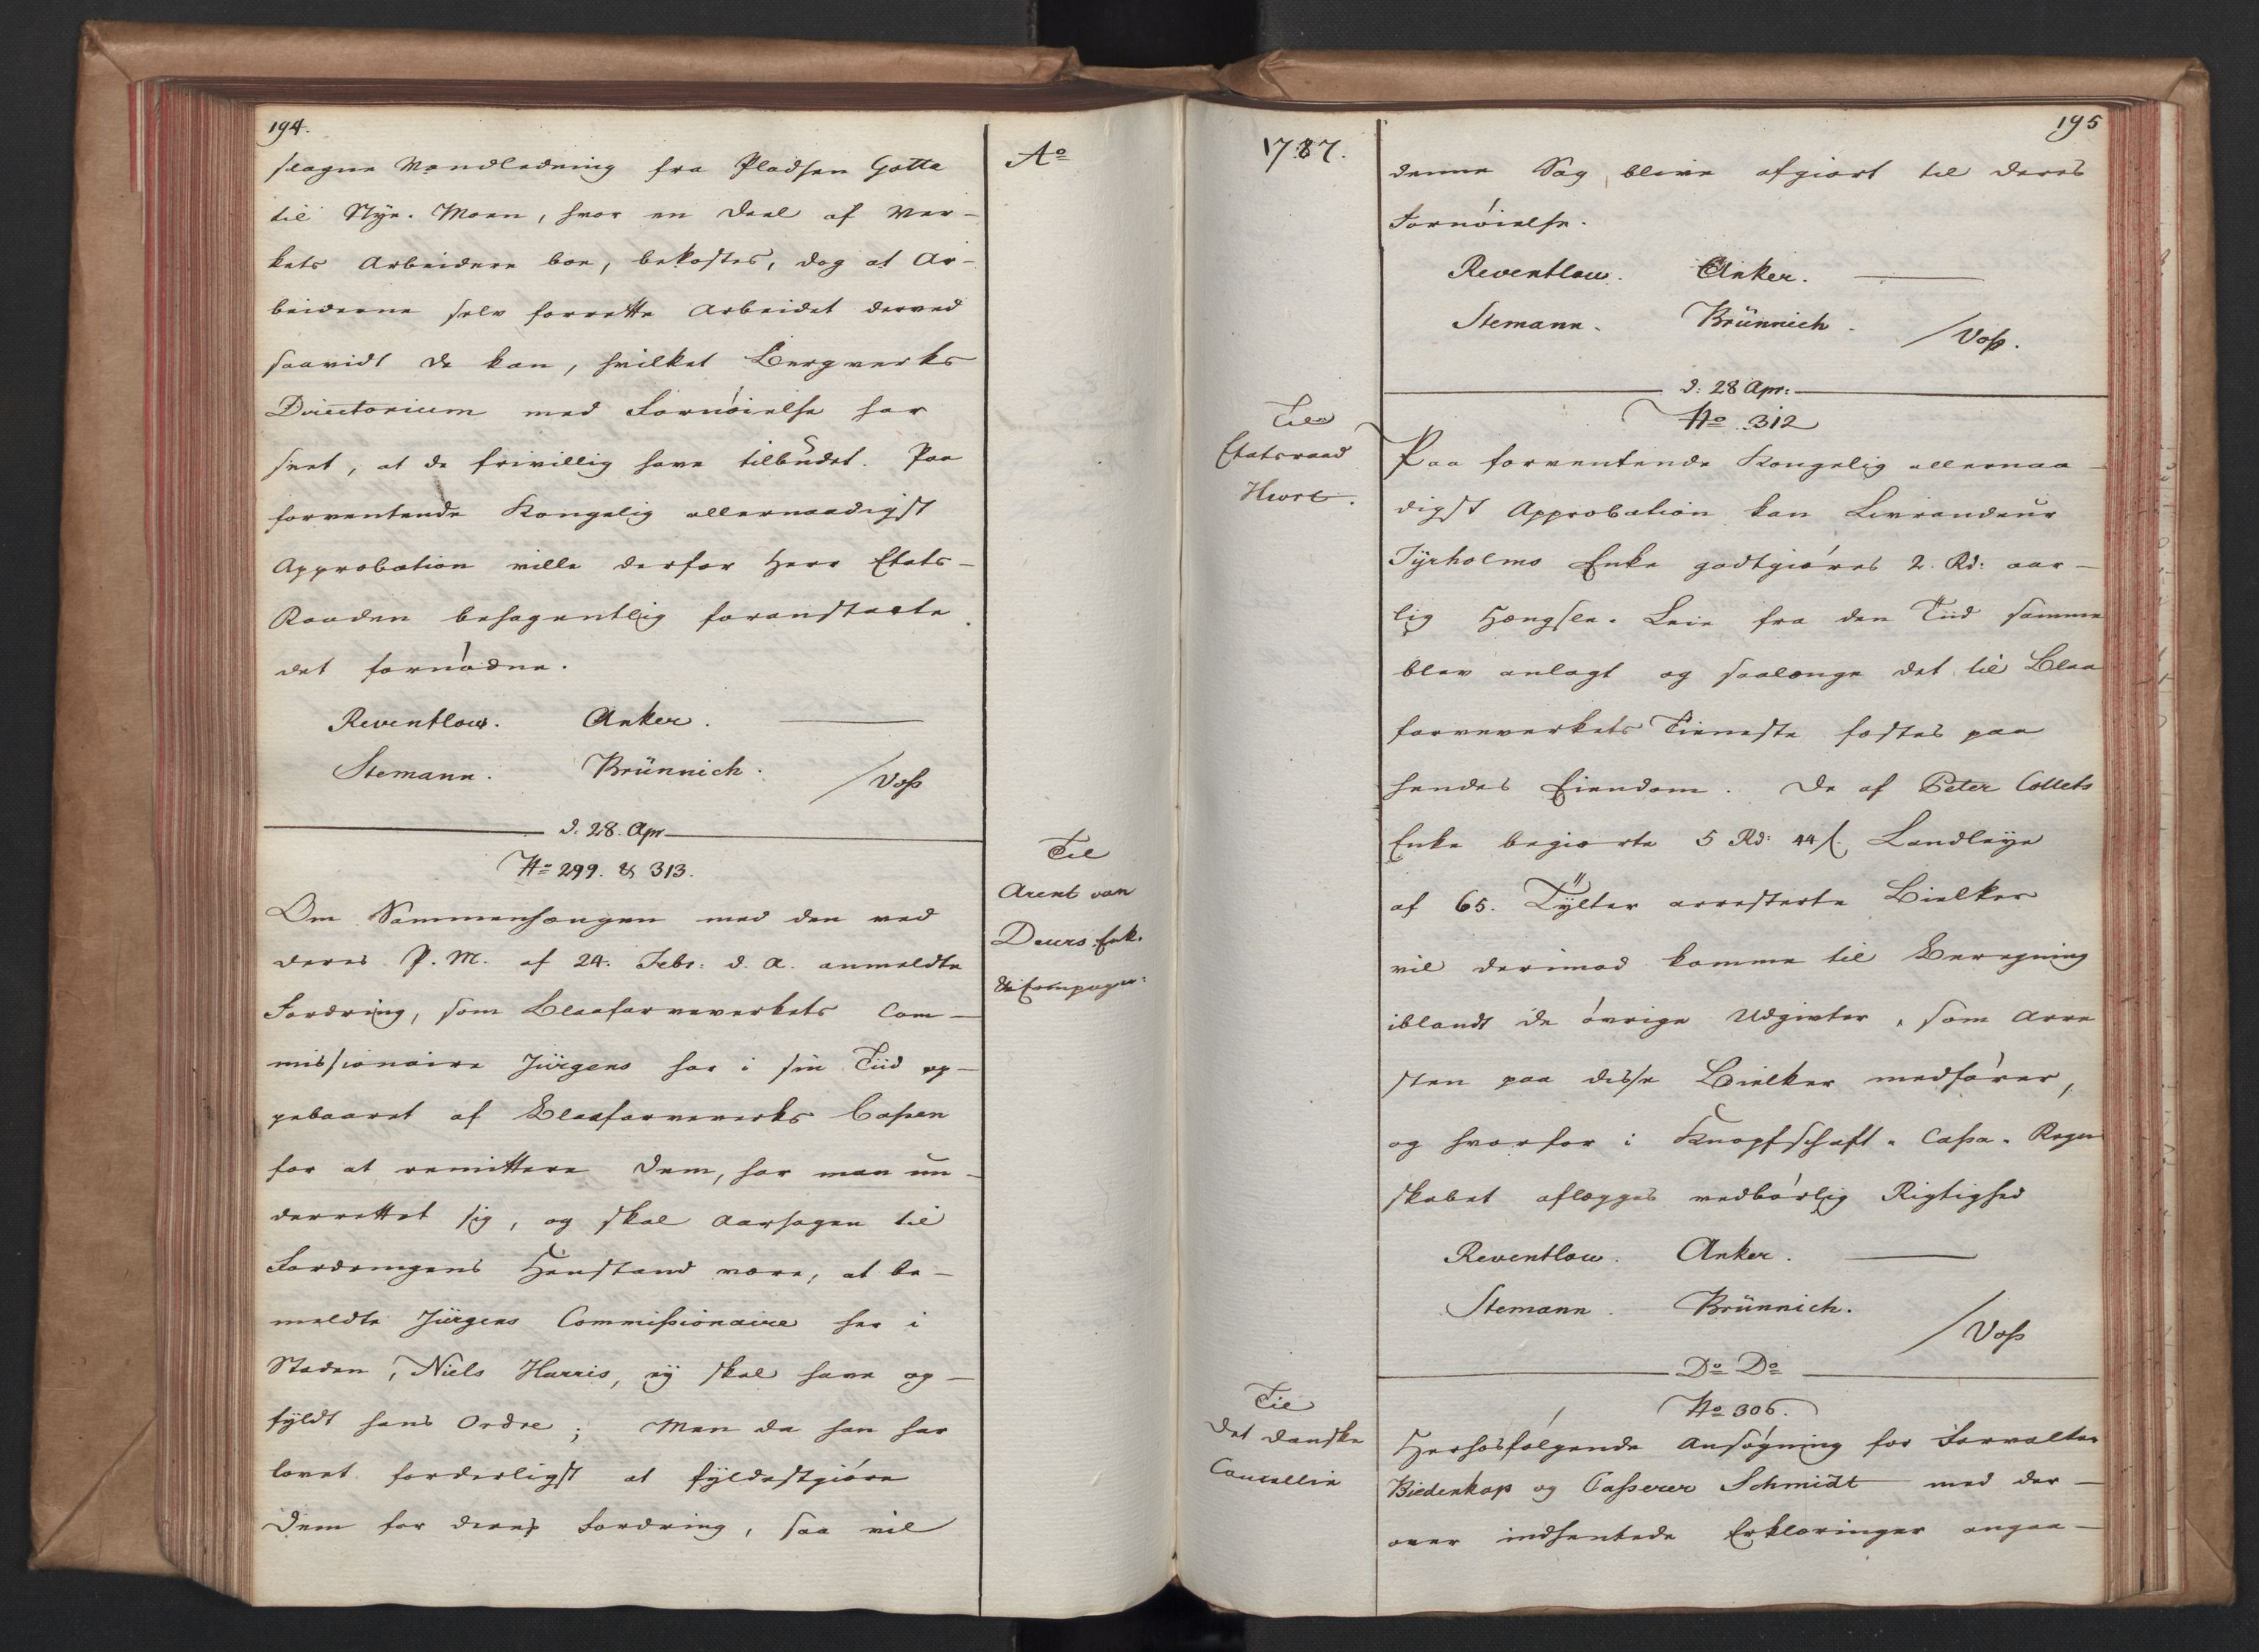 194.
slagne Vandledning fra Pladsen Gotta
til Nye-Moen, hvor en Deel af Ver-
kets Arbeidere boe, bekostes, dog at Ar-
beiderne selv forrette Arbeidet derved
saavidt de kan, hvilket Bergverks
Directorium med Fornøielse har
seet, at de frivillig have tilbudet. Paa
forventende Kongelig allernaadigst
Approbation ville derfor Herr Etats-
Raaden behagentlig foranstalte
det fornødne.
Reventlow. Anker.
Stemann. Brünnich.
/Voss
d. 28. Apr
No 299. & 313.
Om Sammenhængen med den ved
deres P. M. af 24. Febr: d. A. anmeldte
Fordring, som Blaafarveverkets Com-
missionaire Jürgens har i sin Tiid op-
pebaaret af Blaafarveverks Cassen
for at remittere Dem, har man un-
derrettet sig, og skal Aarsagen til
Fordringens Henstand være, at be-
meldte Jürgens Commissionaire her i
Staden, Niels Harris, ey skal have op-
fyldt hans Ordre; Men da han har
lovet forderligst at fyldestgiøre
Dem for deres Fordring, saa vil
Ao
Til
Arent van
Deurs Enk.
& Compagn:
1787.
Til
Etatsraad
Hiort.
Til
Det danske
Cancellie
195
denne Sag blive afgiort til deres
Fornøielse.
Reventlow. Anker.
Stemann. Brünnich.
/Voss.
d: 28 Apr:
No 312
Paa forventende Kongelig allernaa-
digst Approbation kan Livrandeur
Tyrholms Enke godtgiøres 2. Rd: aar-
lig Hængsle-Leie fra den Tiid samme
blev anlagt og saalænge det til Blaa
farveverkets Tieneste fæstes paa
hendes Eiendom. De af Peter Collets
Enke begiærte 5 Rd: 44 s. Landleye
af 65. Tylter arresterte Bielker
vil derimod komme til Beregning
iblandt de øvrige Udgivter, som Arre
sten paa disse Bielker medfører,
og hvorfor i Knapschaft-Cassa-Regn
skabet aflægges vedbørlig Rigtighed
Reventlow. Anker.
Stemann. Brünnich.
/Voss
Do Do
No 306.
Herhosfølgende Ansøgning for Forvalter
Biedenkap og Casserer Schmidt med der-
over indhentede Erklæringer angaa-